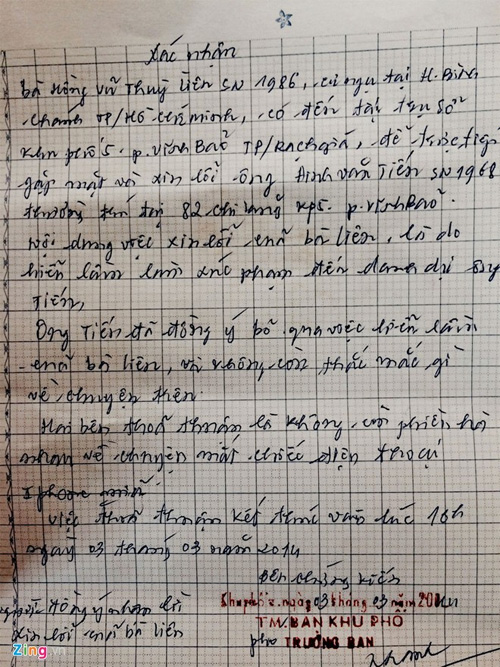 Xác nhận
bà Hồng Vũ Thuý Liên SN 1986, cư ngụ tại H. Bình
chánh TP/Hồ Chí Minh, có đến tại trụ sở
khu phố 5. p. Vĩnh Bảo TP/Rạch giá, để trực tiếp
gặp mặt và xin lỗi ông Đinh Văn Tiến SN 1968
thường trú tại 82 chi lăng kp5. p. Vĩnh Bảo.
Nội dung việc xin lỗi của bà liên, là do
hiểu lầm làm xúc phạm đến danh dự ông
Tiến,
Ông Tiến đã đồng ý bỏ qua việc hiểu lầm
của bà liên, và không còn thắc mắc gì
về chuyện trên.
Hai bên thoả thuận là không còn phiền hà
nhau về chuyện mất chiếc điện thoại
Iphone
việc thoả thuận kết thúc vào lúc 16h
ngày 03 tháng 03 năm 2014
Bên chứng kiến
Khu phố 5, ngày 03 tháng 03 năm 2014
T/M BAN KHU PHỐ
phó TRƯỞNG BAN
đồng ý nhận lời
xin lỗi của bà liên
Zing.vn